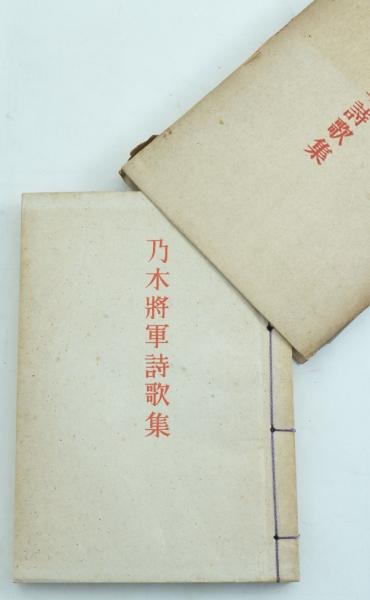 乃木將軍詩歌集
詩歌集